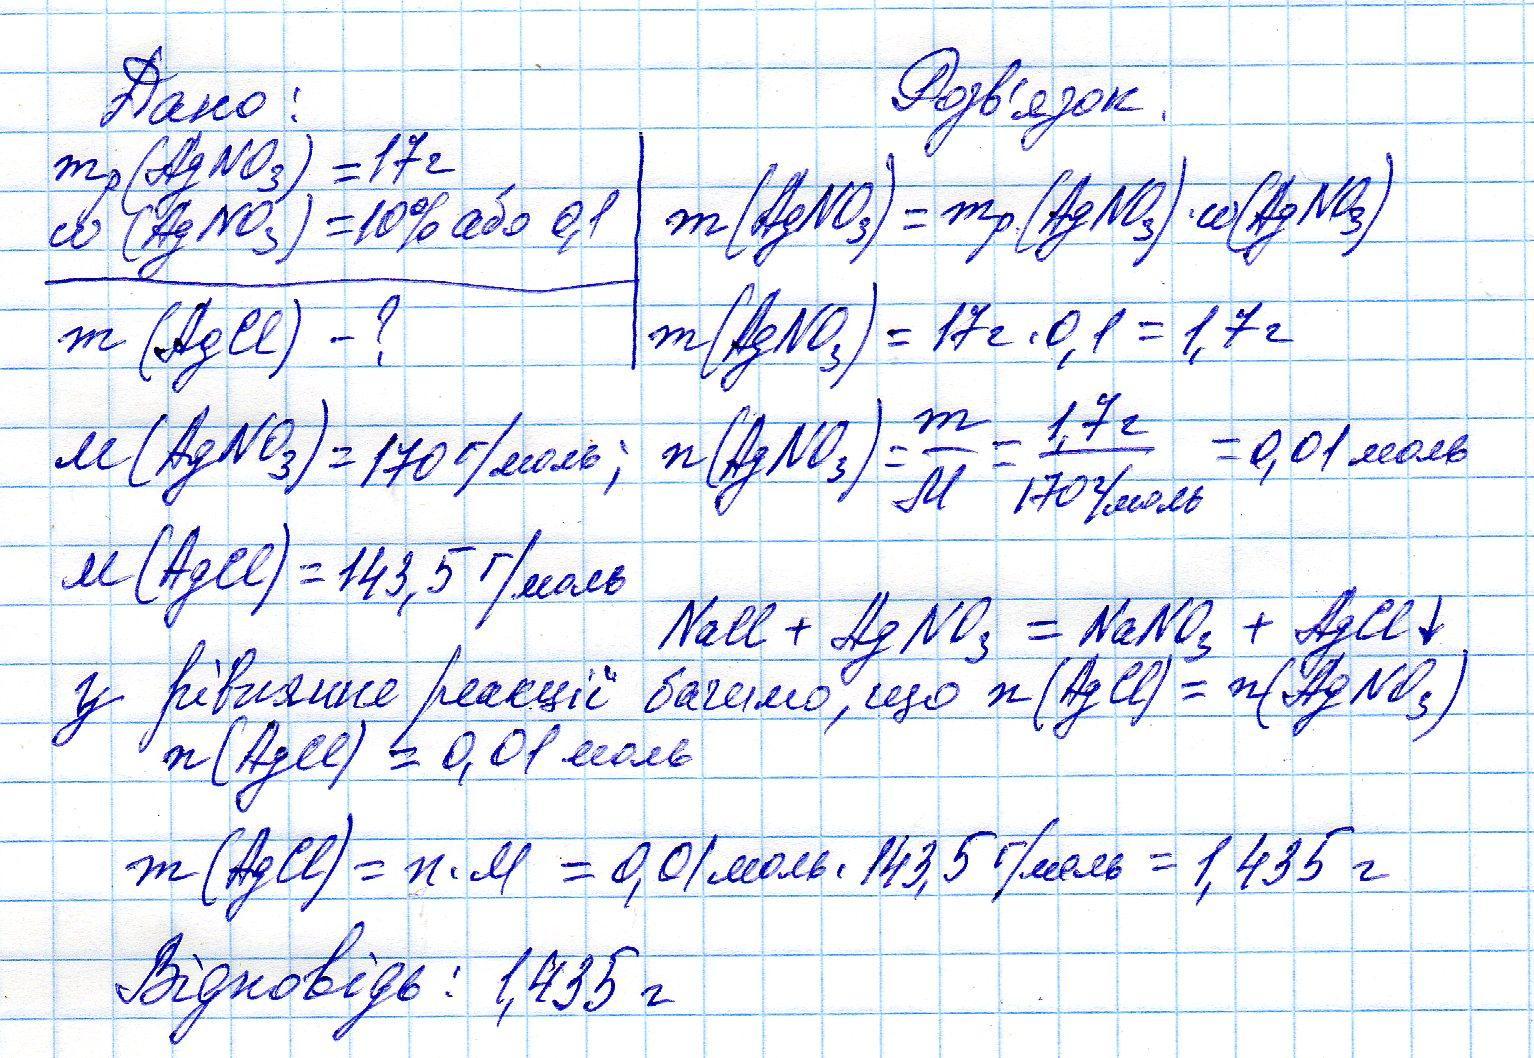 Дано:
mр(AgNO3) = 17г
w (AgNO3) = 10% або 0,1
m (AgCl) - ?
Розв'язок.
m(AgNO3) = mр.(AgNO3)·w(AgNO3)
m(AgNO3) = 17г·0,1 = 1,7г
M(AgNO3) = 170 г/моль; n(AgNO3) = m/M = 1,7г/170г/моль = 0,01 моль
M(AgCl) = 143,5 г/моль
NaCl + AgNO3 = NaNO3 + AgCl↓
у рівнянне реакції бачимо, що n(AgCl) = n(AgNO3)
n(AgCl) = 0,01 моль
m(AgCl) = n·M = 0,01 моль·143,5 г/моль = 1,435 г
Відповідь: 1,435 г